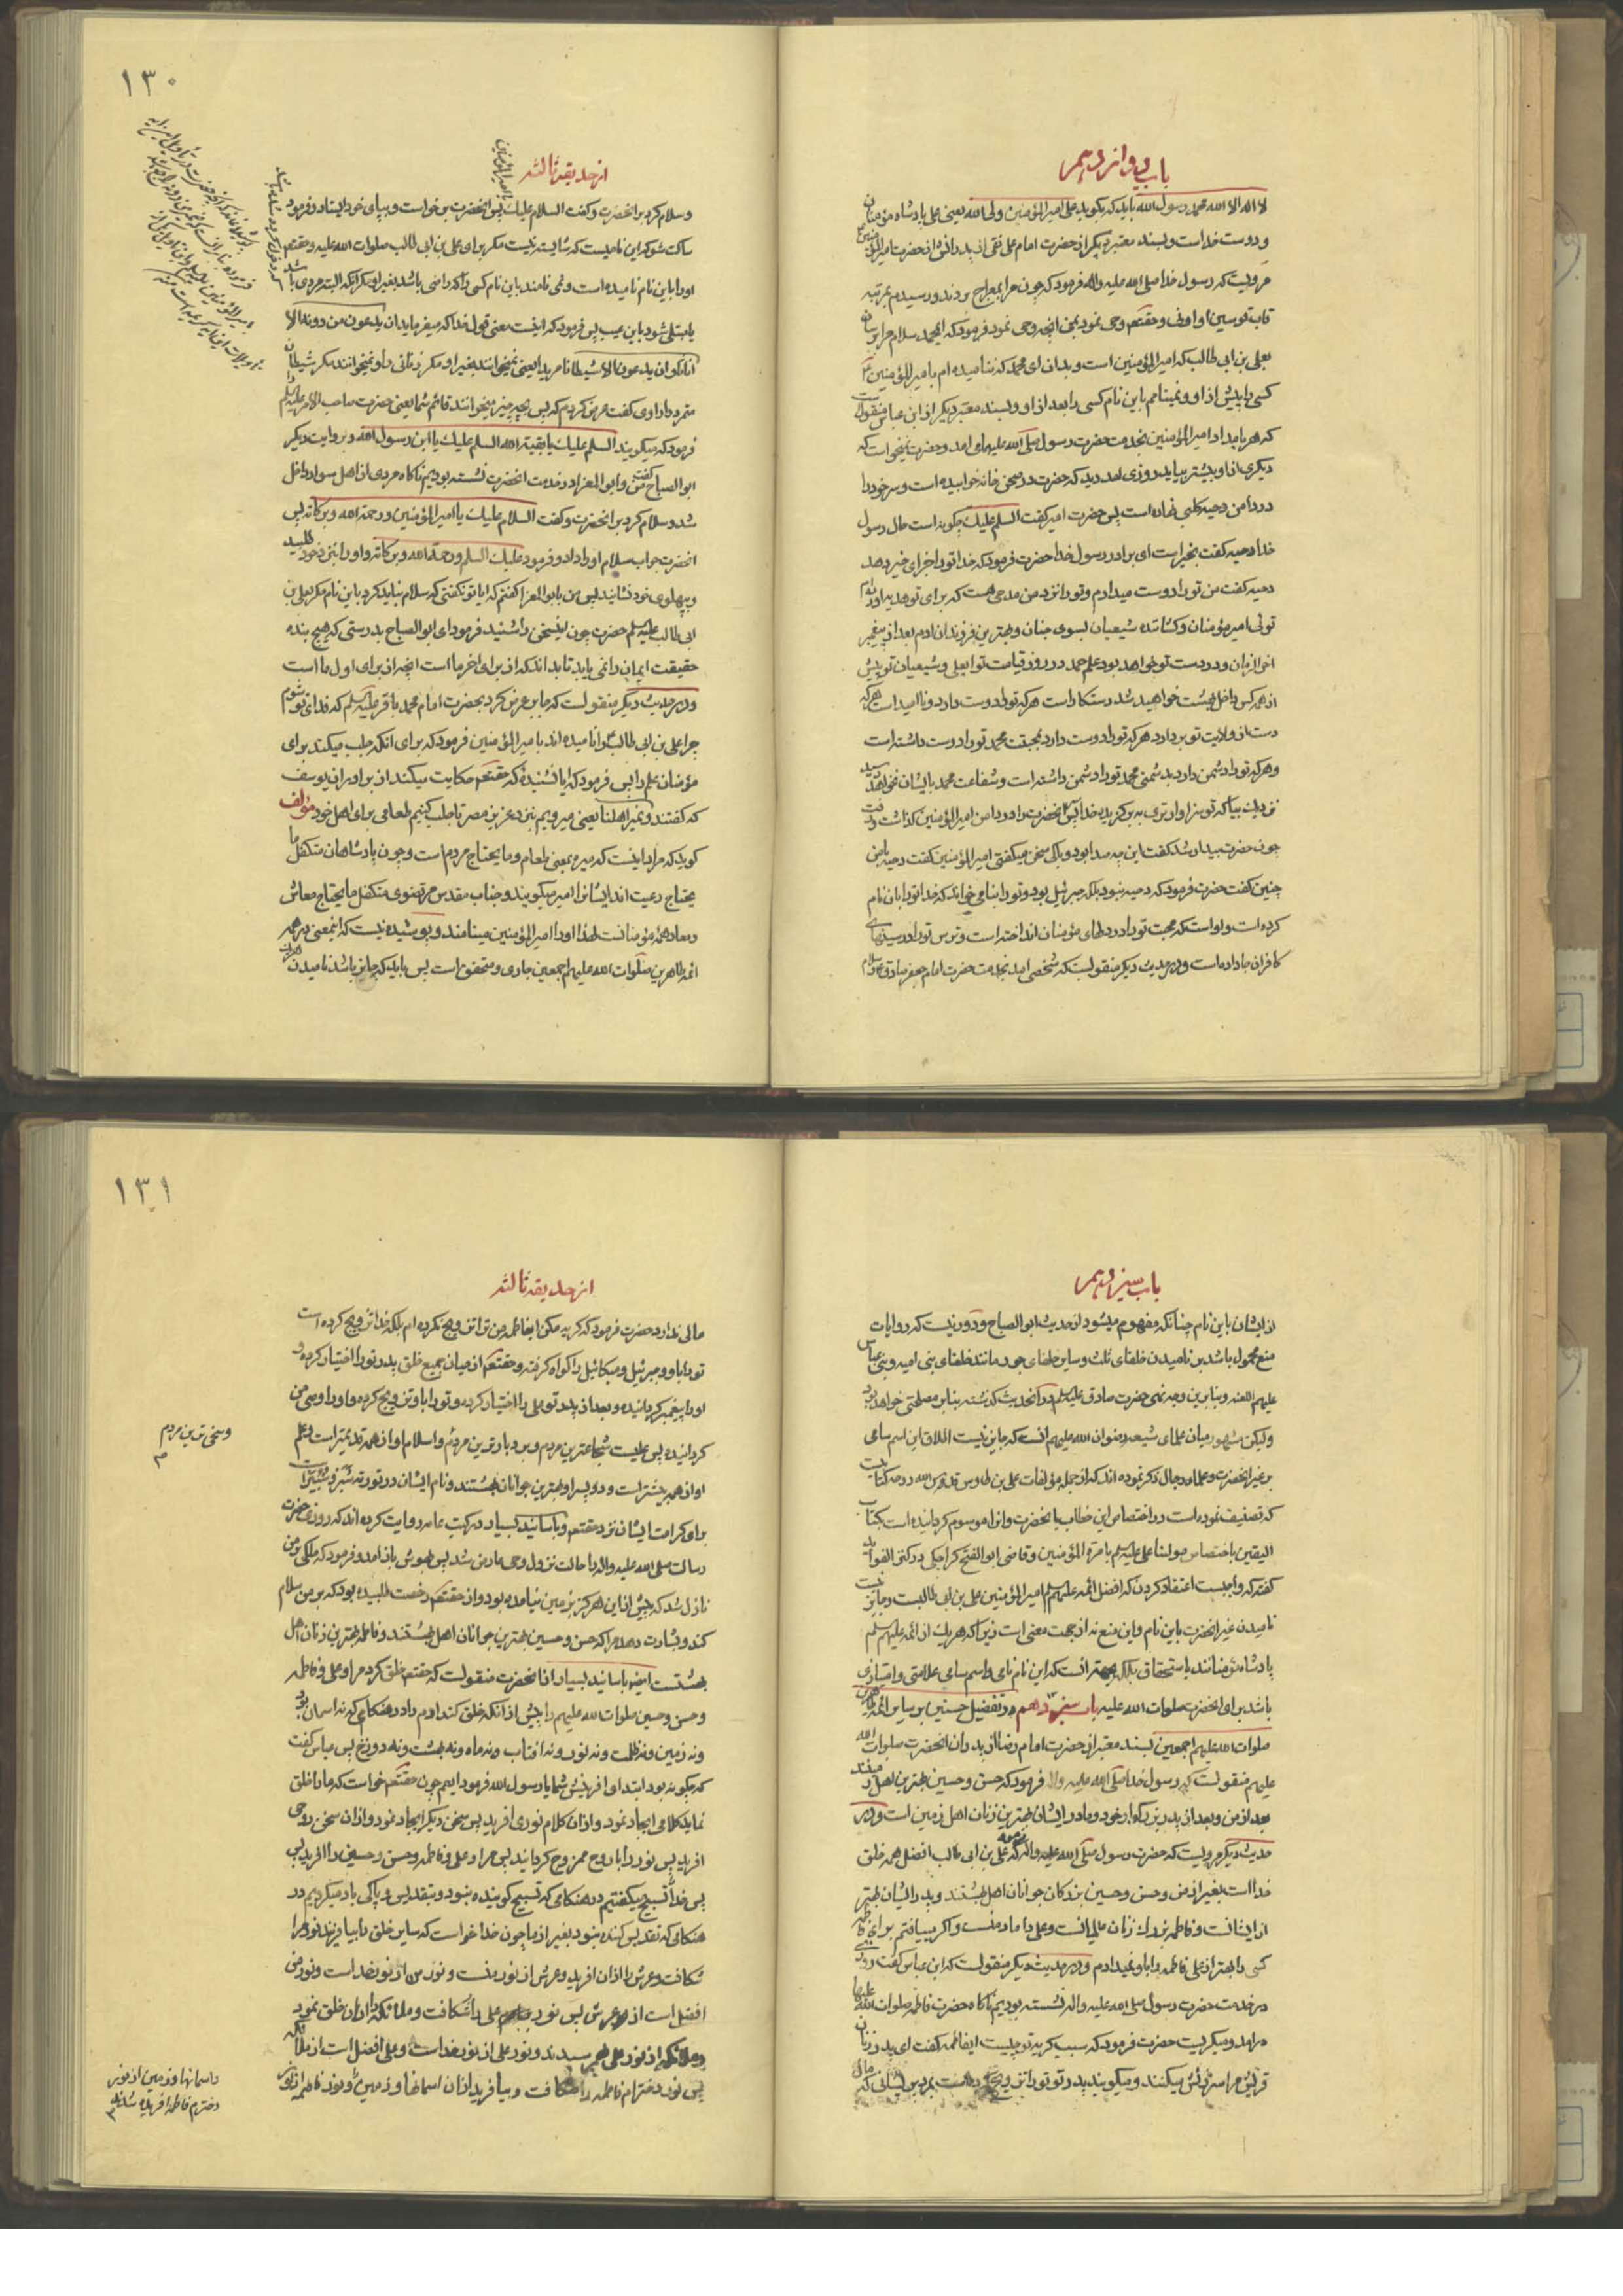 باب دوازدهم
لا اله الا الله محمد رسول الله باید که بگوید علی امیر المؤمنین ولی الله یعنی علی پادشاه مؤمنان
و دوست خداست و بسند معتبر دیگر از حضرت امام علی نقی از پدرانش از حضرت امیر المؤمنین
مرویست که رسول خدا صلی الله علیه واله فرمود که چون مرا بمعراج بردند و رسیدم بمرتبه
قاب قوسین او ادنی و حقتعم وحی نمود بمن انچه وحی نمود فرمود که ای محمد سلام مرا برسان
بعلی بن ابی طالب که امیر المؤمنین است و بدان ای محمد که ننامیده ام بامیر المؤمنین
کسی را پیش از او و نمینامم باین نام کسی را بعد از او و بسند معتبر دیگر از ابن عباس منقولست
که هر بامداد امیر المؤمنین بخدمت حضرت رسول صلی الله علیهما می امد و حضرت نمیخواست که
دیگری از او پیشتر بیاید روزی امد دید که حضرت در صحن خانه خوابیده است و سر خود را
در دامن دحیه کلبی نهاده است پس حضرت امیر کفت السلم علیک چکونه است حال رسول
خدا دحیه کفت بخیر است ای برادر رسول خدا حضرت فرمود که خدا تو را جزای خیر دهد
دحیه کفت من تو را دوست میدارم و تو را نزد من مدحی هست که برای تو هدیه اورده ام
توئی امیر مؤمنان و کشاننده شیعیان بسوی جنان و بهترین فرزندان ادم بعد از پیغمبر
اخر الزمان و در دست تو خواهد بود علم حمد در روز قیامت تو ای علی و شیعیان تو پیش
از همه کس داخل بهشت خواهید شد رستکار است هر که تو را دوست دارد و ناامید است هر که
دست از ولایت تو بردارد هر که تو را دوست دارد بمحبت محمد تو را دوست داشته است
و هر که تو را دشمن دارد بدشمنی محمد تو را دشمن داشته است و شفاعت محمد بایشان نخواهد رسید
نزدیک بیا که تو سزاوارتری به برکزیده خدا پس سر انحضرت را در دامن امیر المؤمنین کذاشت و رفت
چون حضرت بیدار شد کفت این چه صدا بود و باکی سخن میکفتی امیر المؤمنین کفت دحیه با من
چنین کفت حضرت فرمود که دحیه نبود بلکه جبرئیل بود و تو را بنامی خواند که خدا تو را بان نام
کرده است و او است که محبت تو را در دلهای مؤمنان انداخته است و ترس تو را در سینهای
کافران جا داده است و در حدیث دیکر منقولست که شخصی امد بخدمت حضرت امام جعفر صادق
۱۳۰
از حدیقه ثالثه
یا امیر المؤمنین
و سلام کرد بر انحضرت و کفت السلام علیک پس انحضرت برخواست و بپای خود ایستاد و فرمود
ساکت شو که این نامیست که شایسته نیست مکر برای علی بن ابی طالب صلوات الله علیه و حقتعم
او را باین نام نامیده است و نمی نامند باین نام کسی را که راضی باشد بغیر او مکر انکه البته مردی باشد
یا مبتلی شود باین عیب پس فرمود که اینست معنی قول خدا که میفرماید ان یدعون من دونه الا
اناثا و ان یدعون الا شیطانا مریدا یعنی نمیخوانند بغیر او مکر زنانی را و نمیخوانند مکر شیطان
متمرد را راوی کفت عرض کردم که پس بچه چیز میخوانند قائم شما یعنی حضرت صاحب الامر علیه السلم را
فرمود که میکویند السلم علیک یا بقیة الله السلم علیک یا ابن رسول الله و بروایت دیکر
ابو الصباح کفت من و ابو المعزا در خدمت انحضرت نشسته بودیم ناکاه مردی از اهل سواد داخل
شد و سلام کرد بر انحضرت و کفت السلام علیک یا امیر المؤمنین و رحمة الله و برکاته پس
انحضرت جواب سلام او را داد و فرمود علیک السلم و رحمة الله و برکاته و او را بنزد خود طلبید
و بپهلوی خود نشانید پس من بابو المعزا کفتم که ایا تو نکفتی که سلام نباید کرد باین نام مکر بعلی بن
ابی طالب علیه السلم حضرت چون این سخن را شنید فرمود ای ابو الصباح بدرستی که هیچ بنده
حقیقت ایمان را نمی یابد تا بداند که از برای اخر ما است انچه از برای اول ما است
و در حدیث دیکر منقولست که جابر عرض کرد بحضرت امام محمد باقر علیه السلم که فدای تو شوم
چرا علی بن ابی طالب را نامیده اند بامیر المؤمنین فرمود که برای انکه جلب میکند برای
مؤمنان علم را پس فرمود که ایا نشنیدهٔ که حقتعم حکایت میکند از برادران یوسف
که کفتند و نمیر اهلنا یعنی میرویم بنزد عزیز مصر تا جلب کنیم طعامی برای اهل خود مؤلف
کوید که مراد اینست که میره بمعنی طعام و ما یحتاج مردم است و چون پادشاهان متکفل ما
یحتاج رعیت اند ایشانرا امیر میکویند و جناب مقدس مرتضوی متکفل ما یحتاج معاش
و معاد همه مؤمنانست لهذا او را امیر المؤمنین مینامند و پوشیده نیست که اینمعنی در همه
ائمه طاهرین صلوات الله علیهم اجمعین جاری و متحقق است پس باید که جایز باشد نامیدن هر یک
باب سیزدهم
از ایشان باین نام چنانکه مفهوم میشود از حدیث ابو الصباح و دور نیست که روایات
منع محمول باشد بر نامیدن خلفای ثلث و سایر خلفای جور مانند خلفای بنی امیه و بنی عباس
علیهم اللعنه و بنابرین وجه نهی حضرت صادق علیه السلم در انحدیث کذشته بنابر مصلحتی خواهد بود
و لیکن مشهور میان علمای شیعه رضوان الله علیهم انست که جایز نیست اطلاق این اسم سامی
بر غیر انحضرت و علما و رجال ذکر نموده اند که از جمله مؤلفات علی بن طاوس قدس الله روحه کتابیست
که تصنیف نموده است در اختصاص این خطاب بانحضرت و انرا موسوم کردانیده است بکتاب
الیقین باختصاص مولینا علی علیه السلم بامرة المؤمنین و قاضی ابو الفتح کراجکی در کنز الفواید
کفته که واجبست اعتقاد کردن که افضل ائمه علیهم السلم امیر المؤمنین علی بن ابی طالبست و جایز نیست
نامیدن غیر انحضرت باین نام و این منع نه از جهت معنی است زیرا که هر یک از ائمه علیهم السلم
پادشاه مؤمنانند باستحقاق بلکه بهتر انست که این نام نامی و اسم سامی علامتی و امتیازی
باشد برای انحضرت صلوات الله علیه باب سیزدهم در تفضیل حسنین بر سایر ائمه طاهرین
صلوات الله علیهم اجمعین بسند معتبر از حضرت امام رضا از پدران انحضرت صلوات الله
علیهم منقولست که رسول خدا صلی الله علیه واله فرمود که حسن و حسین بهترین اهل زمینند
بعد از من و بعد از پدر بزرکوار خود و مادر ایشان بهترین زنان اهل زمین است و در
حدیث دیکر مرویست که حضرت رسول صلی الله علیه واله فرمود که علی بن ابی طالب افضل همه خلق
خدا است بغیر از من و حسن و حسین بزرکان جوانان اهل بهشتند و پدر ایشان بهتر
از ایشانست و فاطمه بزرک زنان عالمیانست و علی داماد منست و اکر مییافتم برای فاطمه
کسی را بهتر از علی فاطمه را باو نمیدادم و در حدیث دیکر منقولست که ابن عباس کفت روزی
در خدمت حضرت رسول صلی الله علیه واله نشسته بودیم ناکاه حضرت فاطمه صلوات الله علیها
درامد و میکریست حضرت فرمود که سبب کریه تو چیست ایفاطمه کفت ای پدر زنان
قریش مرا سرزنش میکنند و میکویند پدر تو تو را تزویج کرده است بمرد پریشانی که مال
۱۳۱
از حدیقه ثالثه
مالی ندارد حضرت فرمود که کریه مکن ایفاطمه من تو را تزویج نکرده ام بلکه خدا تزویج کرده است
تو را باو و جبرئیل و میکائیل را کواه کرفته و حقتعم از میان جمیع خلق پدر تو را اختیار کرده و
او را پیغمبر کردانیده و بعد از پدر تو علی را اختیار کرده و تو را باو تزویج کرده و او را وصی من
کردانیده پس علیست شجاعترین مردم و بردبارترین مردم و اسلام او از همه قدیمتر است و علم
او از همه بیشتر است و دو پسر او بهترین جوانان بهشتند و نام ایشان در توریة شبر و شبیر است
برای کرامت ایشان نزد حقتعم و باسانید بسیار در کتب عامه روایت کرده اند که روزی حضرت
رسالت صلی الله علیه واله را حالت نزول وحی عارض شد پس بهوش باز امد و فرمود که ملکی بر من
نازل شد که پیش از این هرکز بزمین نیامده بود و از حقتعم رخصت طلبیده بود که بر من سلام
کند و بشارت دهد مرا که حسن و حسین بهترین جوانان اهل بهشتند و فاطمه بهترین زنان اهل
بهشتست ایضا باسانید بسیار از انحضرت منقولست که حقتعم خلق کرد مرا و علی و فاطمه
و حسن و حسین صلوات الله علیهم را پیش از انکه خلق کند ادم را در هنکامی که نه اسمان بود
و نه زمین و نه ظلمت و نه نور و نه افتاب و نه ماه و نه بهشت و نه دوزخ پس عباس کفت
که چکونه بود ابتدای افرینش شما یا رسول الله فرمود ایعم چون حقتعم خواست که ما را خلق
نماید کلامی ایجاد نمود و از ان کلام نوری افرید پس سخن دیکر ایجاد نمود و از ان سخن روحی
افرید پس نور را با روح ممزوج کردانید پس مرا و علی و فاطمه و حسن و حسین را افرید پس
پس خدا را تسبیح میکفتیم در هنکامی که تسبیح کوینده نبود و بتقدیس و پاکی یاد میکردیم در
هنکامی که تقدیس کننده نبود بغیر از ما چون خدا خواست که سایر خلق را بیافریند نور مرا
شکافت و عرش را از ان افرید و عرش از نور منست و نور من از نور خدا است و نور من
افضل است از عرش پس نور علی را شکافت و ملائکه را از ان خلق نمود
و ملائکه از نور علی و نور علی از نور خداست و علی افضل است از ملائکه
پس نور دخترم فاطمه را شکافت و بیافرید از ان اسمانها و زمین را و نور فاطمه از نور
و سخی ترین مردم
و اسمانها و زمین از نور
دخترم فاطمه افریده شده